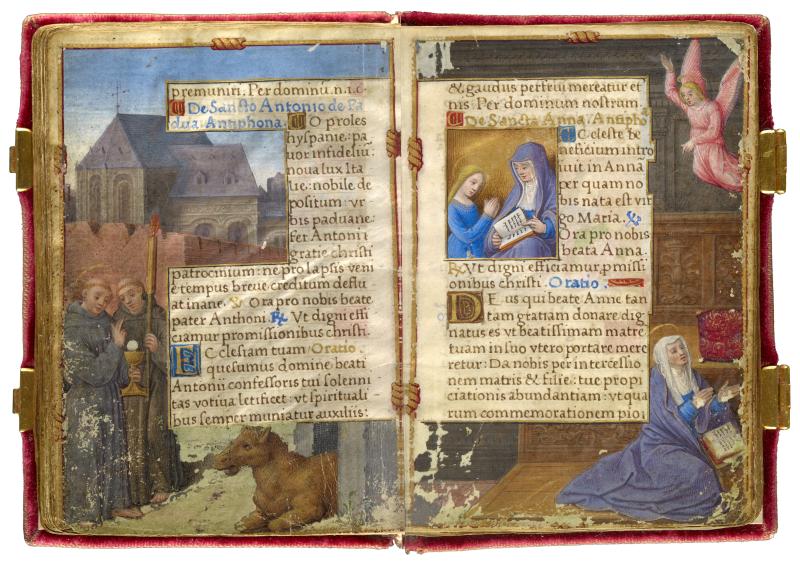 premuniri. Per dominū. n. i. c.
De Sancto Antonio de Pa
dua. Antiphona. O proles
hyspanie: pa
uor infideliū:
noua lux Ita
lie: nobile de
positum: vr
bis paduane:
fer Antoni
gratie christi
patrocinium: ne prolapsis veni
e tempus breue creditum deflu
at inane. Ora pro nobis beate
pater Anthoni. ℟. Vt digni effi
ciamur promissionibus christi.
Ecclesiam tuam Oratio.
quesumus domine beati
Antonii confessoris tui solenni
tas votiua letificet: vt spirituali
bus semper muniatur auxiliis:
& gaudiis perfrui mereatur et
nis. Per dominum nostrum.
De Sancta Anna. Antiphō
Celeste be
neficium intro
iuit in Annā
per quam no
bis nata est vir
go Maria. ℣.
Ora pro nobis
beata Anna.
℟. Vt digni efficiamur pmissi
onibus christi. Oratio.
Deus qui beate Anne tan
tam gratiam donare dig
natus es vt beatissimam matrē
tuam in suo vtero portare mere
retur: Da nobis per intercessio
nem matris & filie: tue propi
ciationis abundantiam: vt qua
rum commemorationem pio